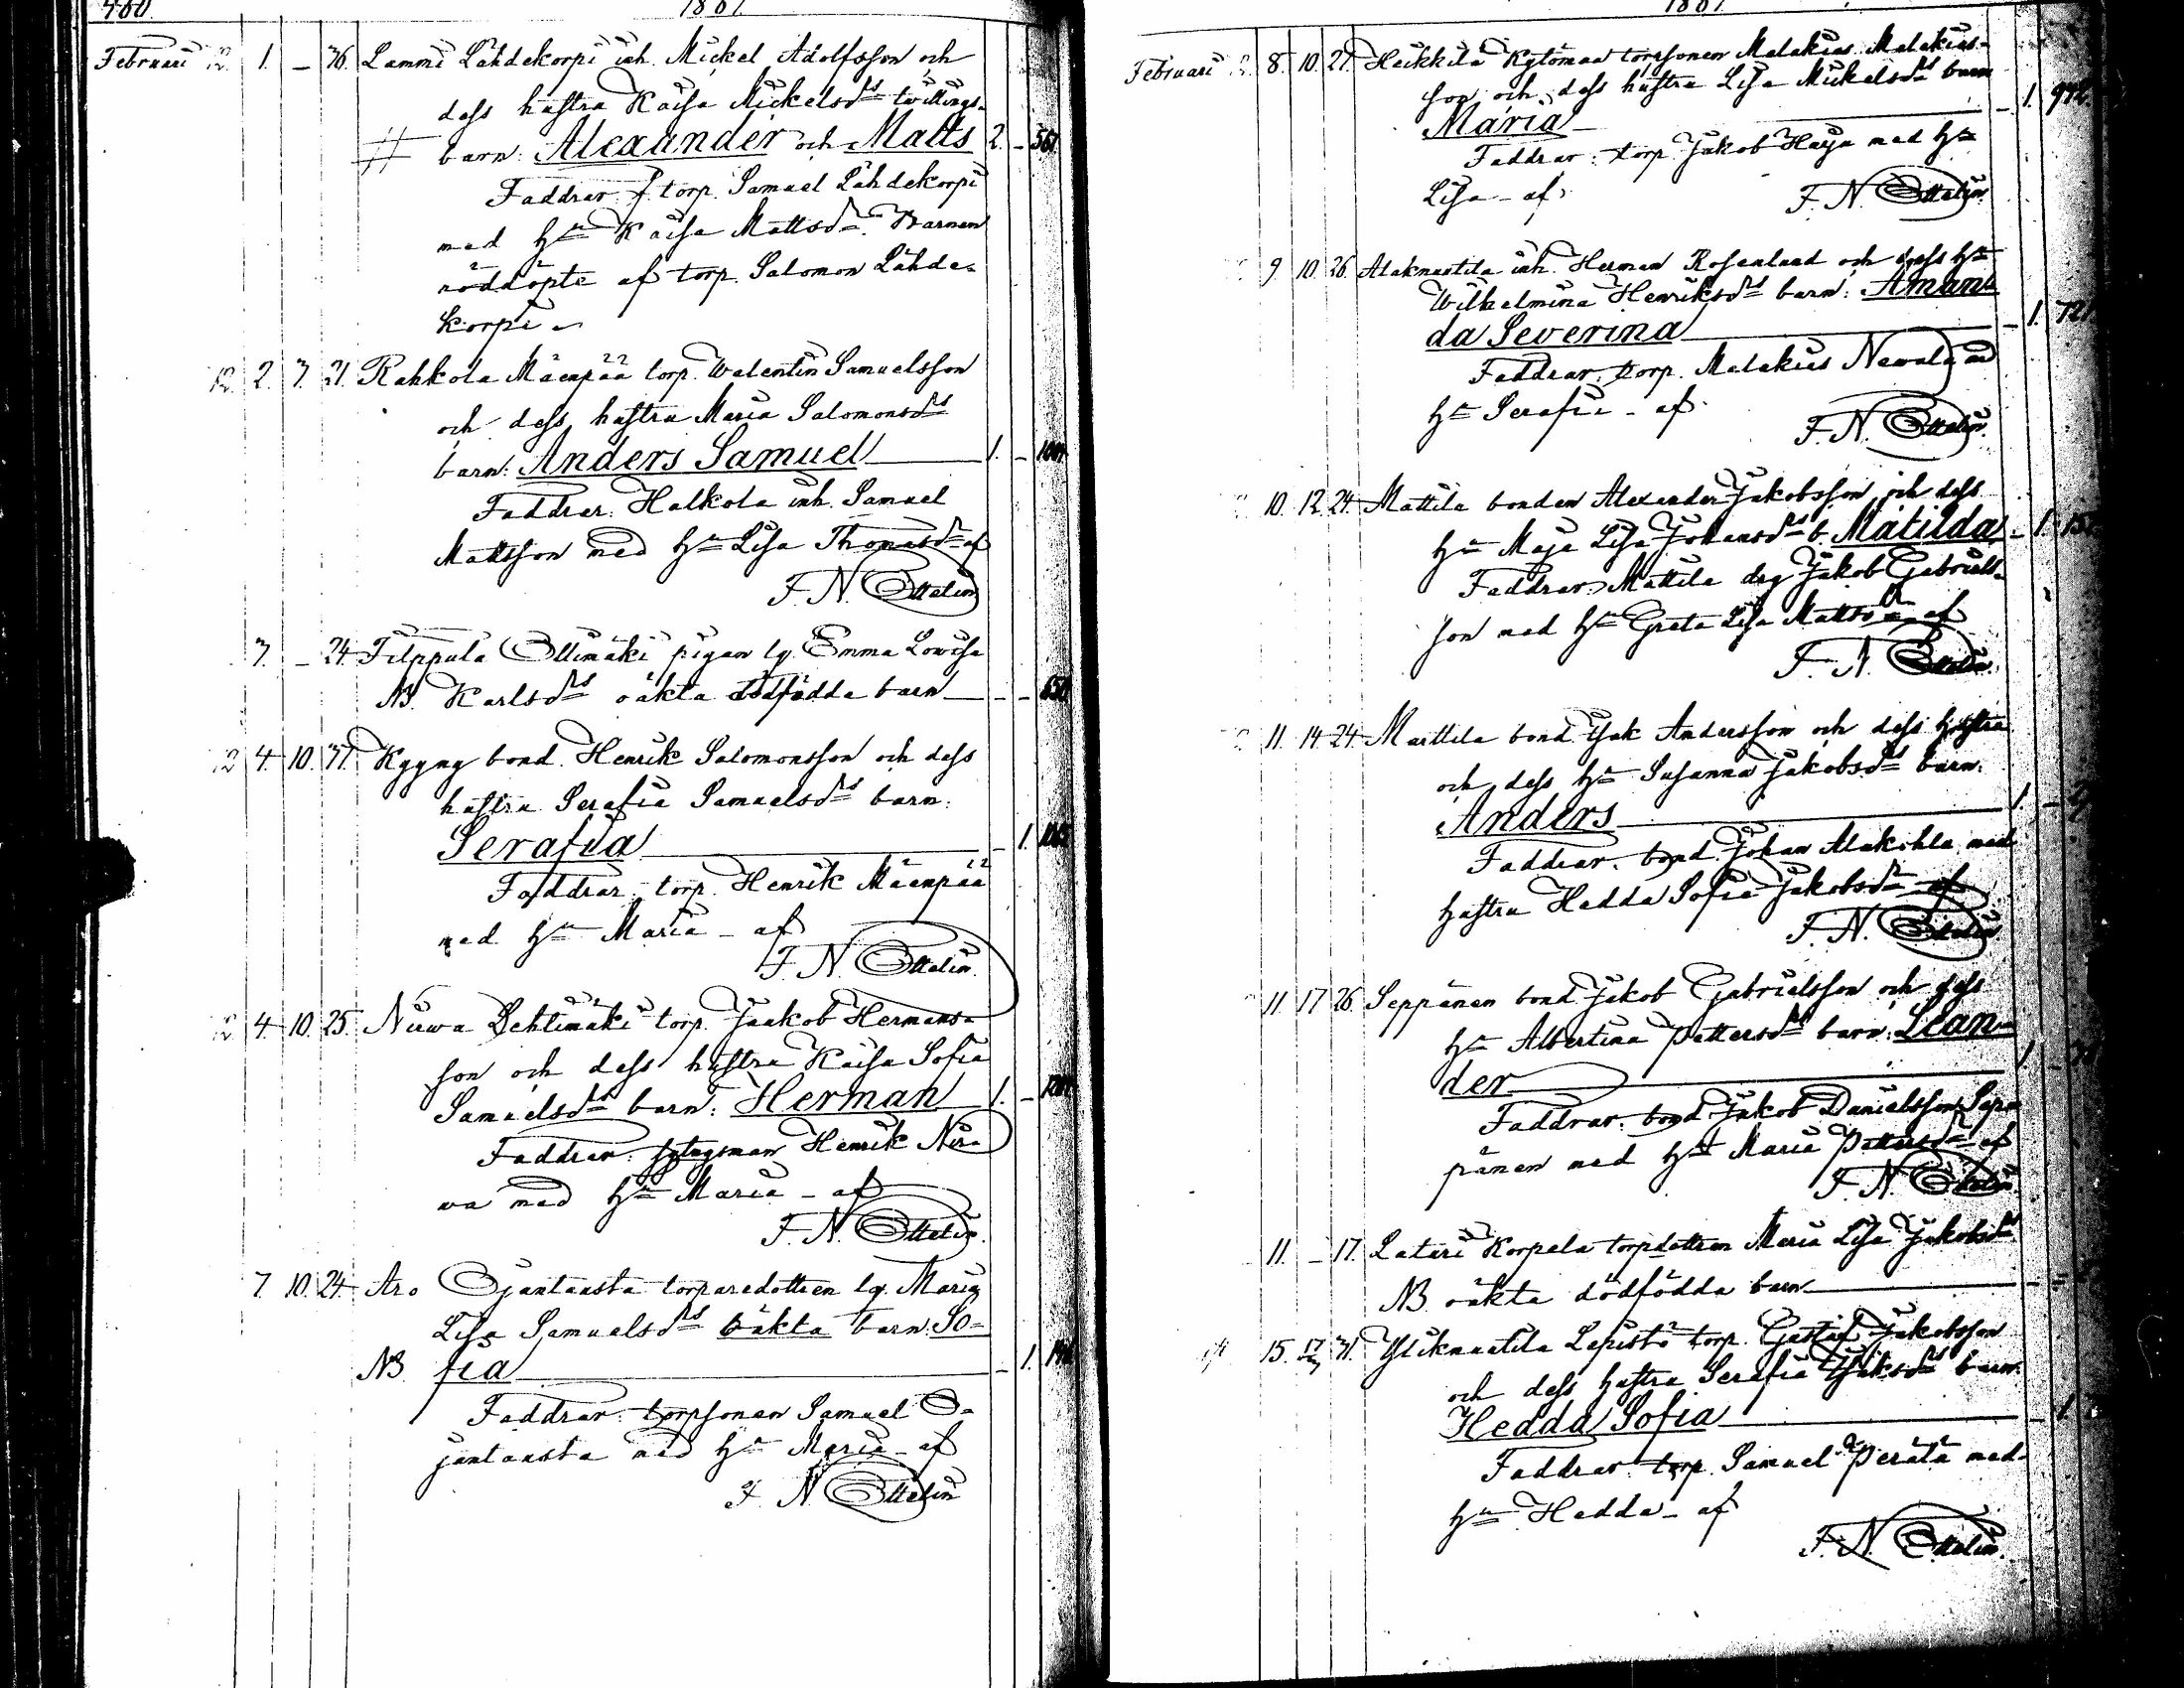 460
1861.
Februari 12. 1. _ 36. Lammi Lähdekorpi inh. Mickel Adolfsson och
dess hustru Kaisa Mickelsdrs tvillings-
barn: Alexander och Matts 2. _ 561.
Faddrar: torp. Samuel Lähdekorpi
med hu Kaisa Mattsdr. Barnen
nöddöpte af torp. Salomon Lähde-
korpi
12. 2. 7. 21. Rahkola Mäenpää torp. Walentin Samuelsson
och dess hustru Maria Salomonsdrs
barn: Anders Samuel 1. _
Faddrar: Halkola inh. Samuel
Mattsson med hu Lisa Thomasdr af
F. N. Ottelin
7. _ 24. Filppula Ollimäki pigan lg. Emma Lowisa
NB. Karlsdrs oäkta dödfödda barn _ _ 650
12 4. 10. 37. Kyyny bond. Henrik Salomonsson och dess
hustru Serafia Samuelsdrs barn:
Serafia _ 1.
Faddrar: torp. Henrik Mäenpää
med hu Maria _ af
F. N. Ottelin.
12 4. 10. 25. Nirwa Lehtimäki torp. Jaakob Hermans-
son och dess hustru Kaisa Sofia
Samuelsdrs barn: Herman 1. _
Faddrar: sytngsman Henrik Nir-
wa med hu Maria _ af
F. N. Ottelin.
7. 10. 24. Aro Ojantausta torparedottren lg. Maria
Lisa Samuelsdrs oäkta barn: So-
NB. fia _ 1.
Faddrar: torpsonen Samuel O-
jantausta med hu Maria _ af
F. N. Ottelin
1861.
Februari 8. 10. 27. Heikkilä Kytömaa torpsonen Malakias Malakias-
son och dess hustru Lisa Mickelsdrs barn
Maria _ 1. 972.
Faddrar: torp. Jakob Harja med hu
Lisa _ af
F. N. Ottelin.
9. 10. 26. Alaknuutila inh. Herman Rosenlund och dess hu
Wilhelmina Henriksdrs barn: Aman-
da Severina _ 1. 721
Faddrar: torp. Malakias Newala med
hu Serafia _ af
F. N. Ottelin.
10. 12. 24. Mattila bonden Alexander Jakobsson och dess
hu Maja Lisa Johansdrs b. Matilda _ 1.
Faddrar: Mattila drg Jakob Gabriels-
son med hu Greta Lisa Mattsdr af
F. N. Ottelin.
11. 14. 24. Marttila bond. Isak Andersson och dess hustru
och dess hu Susanna Jakobsdrs barn:
Anders 1. _
Faddrar: bond. Johan Alakihla med
hustru Hedda Sofia Jakobsdr af
F. N. Ottelin
11. 17. 26. Seppänen bond. Jakob Gabrielsson och dess
hu Albertina Pettersdrs barn: Lean-
der 1. _
Faddrar: bond. Jakob Danielsson Sep-
pänen med hu Maria Pettersdr af
F. N. Ottelin.
11. _ 17. Latari Korpela torpdottren Maria Lisa Jakobsdrs
NB. oäkta dödfödda barn
15. 17. 31. Yliknuutila Lepistö torp. Gustaf Jakobsson
och dess hustru Serafia Isaksdrs barn
Hedda Sofia _ 1.
Faddrar: torp. Samuel Perätä med
hu Hedda _ af
F. N. Ottelin.